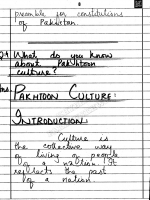 preamble for constitutions
of Pakistan.
Q4 What do you know
about Pakhtoon
culture?
Ans:
PAKHTOON CULTURE:
INTRODUCTION:
Culture is
the collective way
of living of people
of a nation. It
reflects the past
of a nation